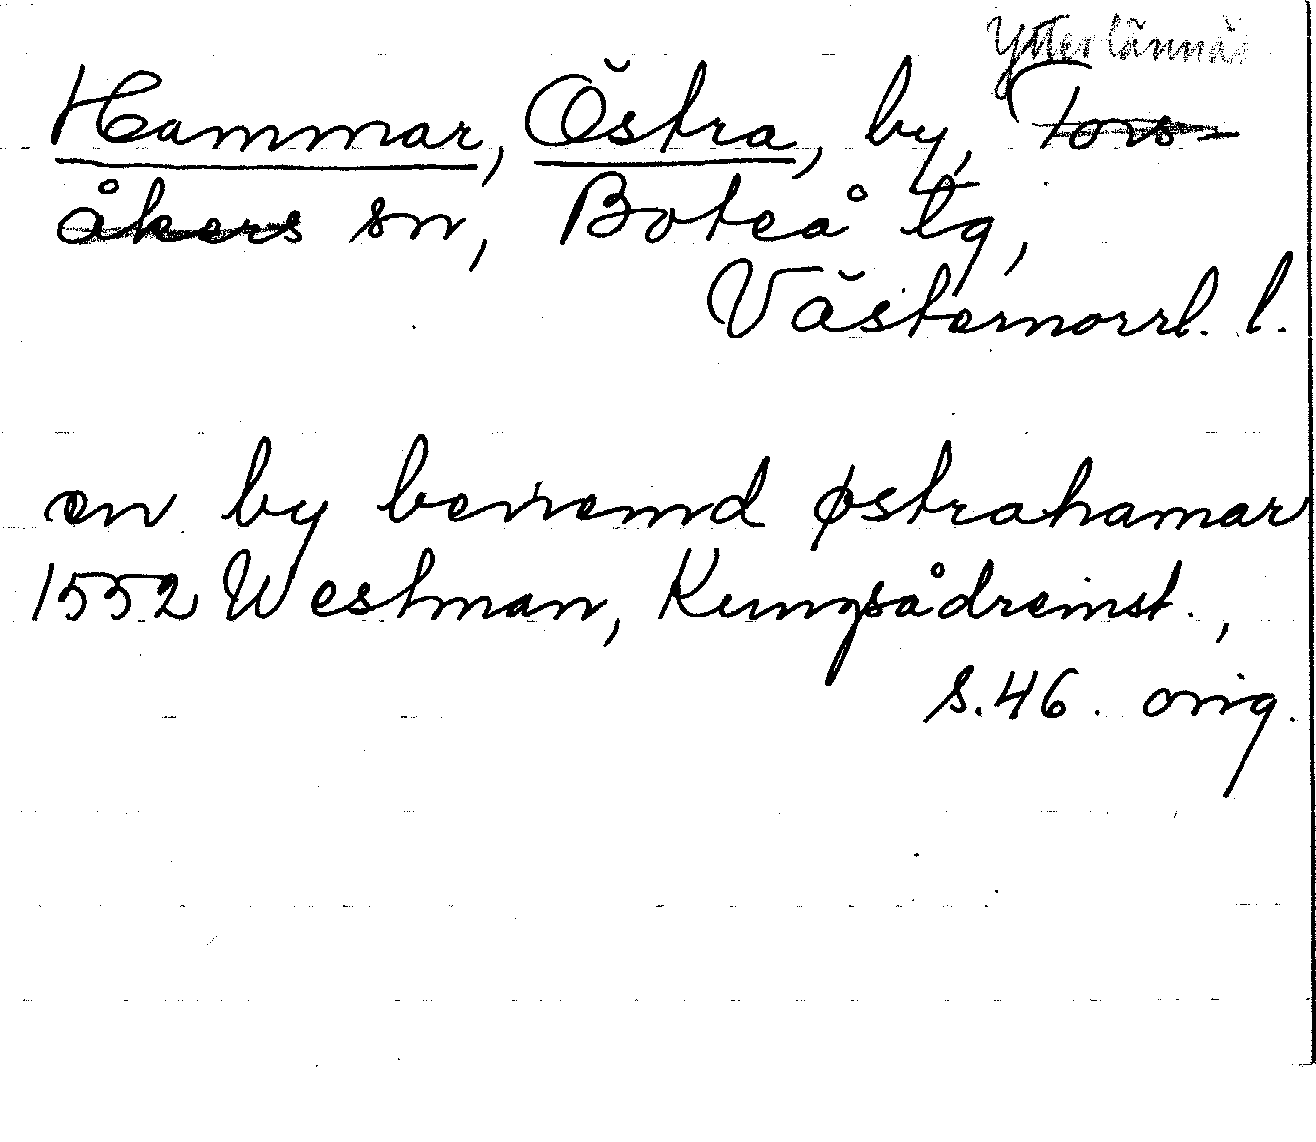 Ytterlännäs
Hammar, Östra, by, Tors-
åkers sn, Boteå tg,
Västernorrl. l.
en by benemd østrahamar
1552 Westman, Kungsådreinst.,
s. 46. orig.